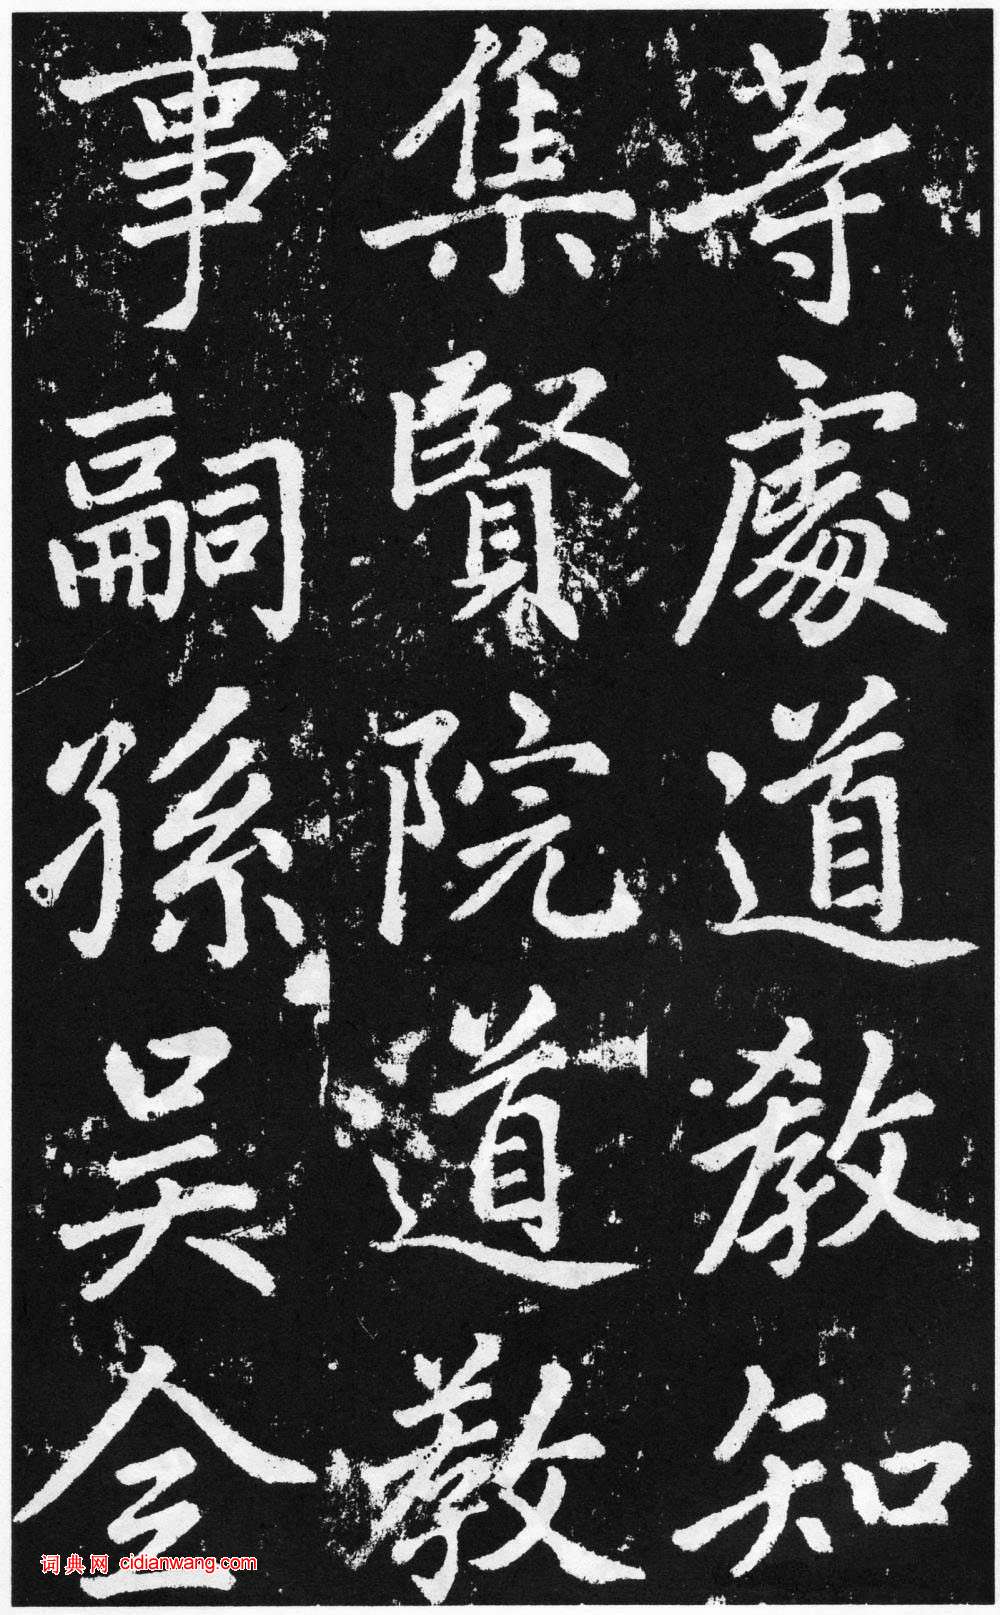 等處道教知
集賢院道教
事嗣孫吳全
词典网 cidianwang.com